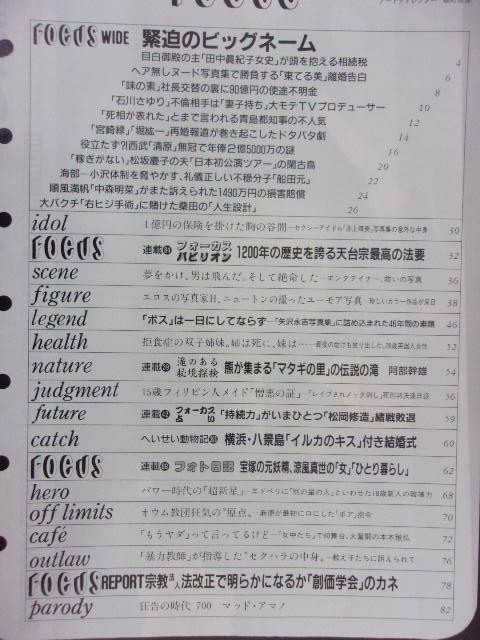 FOCUS WIDE 緊迫のビッグネーム
目白御殿の主「田中眞紀子女史」が頭を抱える相続税 4
ヘア無しヌード写真集で勝負する「東てる美」離婚告白 6
「味の素」社長交替の裏に90億円の使途不明金 8
「石川さゆり」不倫相手は「妻子持ち」大モテTVプロデューサー 10
「死相が表れた」とまで言われる青島都知事の不人気 12
「宮崎緑」「堀紘一」再婚報道が巻き起こしたドタバタ劇 14
役立たず?!西武「清原」無冠で年俸2億5000万の謎 16
「稼ぎがない」松坂慶子の夫「日本初公演ツアー」の閑古鳥 20
海部―小沢体制を脅やかす、礼儀正しい不穏分子「船田元」 22
順風満帆「中森明菜」がまた訴えられた1490万円の損害賠償 24
大バクチ「右ヒジ手術」に賭けた桑田の「人生設計」 26
idol 1億円の保険を掛けた胸の谷間 30
FOCUS 連載 フォーカスパビリオン 1200年の歴史を誇る天台宗最高の法要 32
scene 夢をかけ、男は飛んだ。そして絶命した 36
figure エロスの写真家H.ニュートンの撮ったユーモア写真 38
legend 「ボス」は一日にしてならず―「矢沢永吉写真集」に詰め込まれた46年間の素顔 46
health 拒食症の双子姉妹。姉は死に、妹は… 52
nature 連載 滝のある秘境探検 熊が集まる「マタギの里」の伝説の滝 阿部幹雄 54
judgment 15歳フィリピン人メイド「憎悪の証」 56
future 連載 フォーカス占い 「持続力」がいまひとつ「松岡修造」緒戦敗退 59
catch へいせい動物記 横浜・八景島「イルカのキス」付き結婚式 60
FOCUS 連載 フォト日記 宝塚の元妖精、涼風真世の「女」「ひとり暮らし」 62
hero パワー時代の「超新星」 68
off limits オウム教団狂気の"原点" 70
café 「もうヤダ」って言ってるけど 72
outlaw 「暴力教師」が指導した"セクハラの中身" 76
FOCUS REPORT 宗教法人法改正で明らかになるか「創価学会」のカネ 78
parody 狂告の時代 700 マッド・アマノ 82